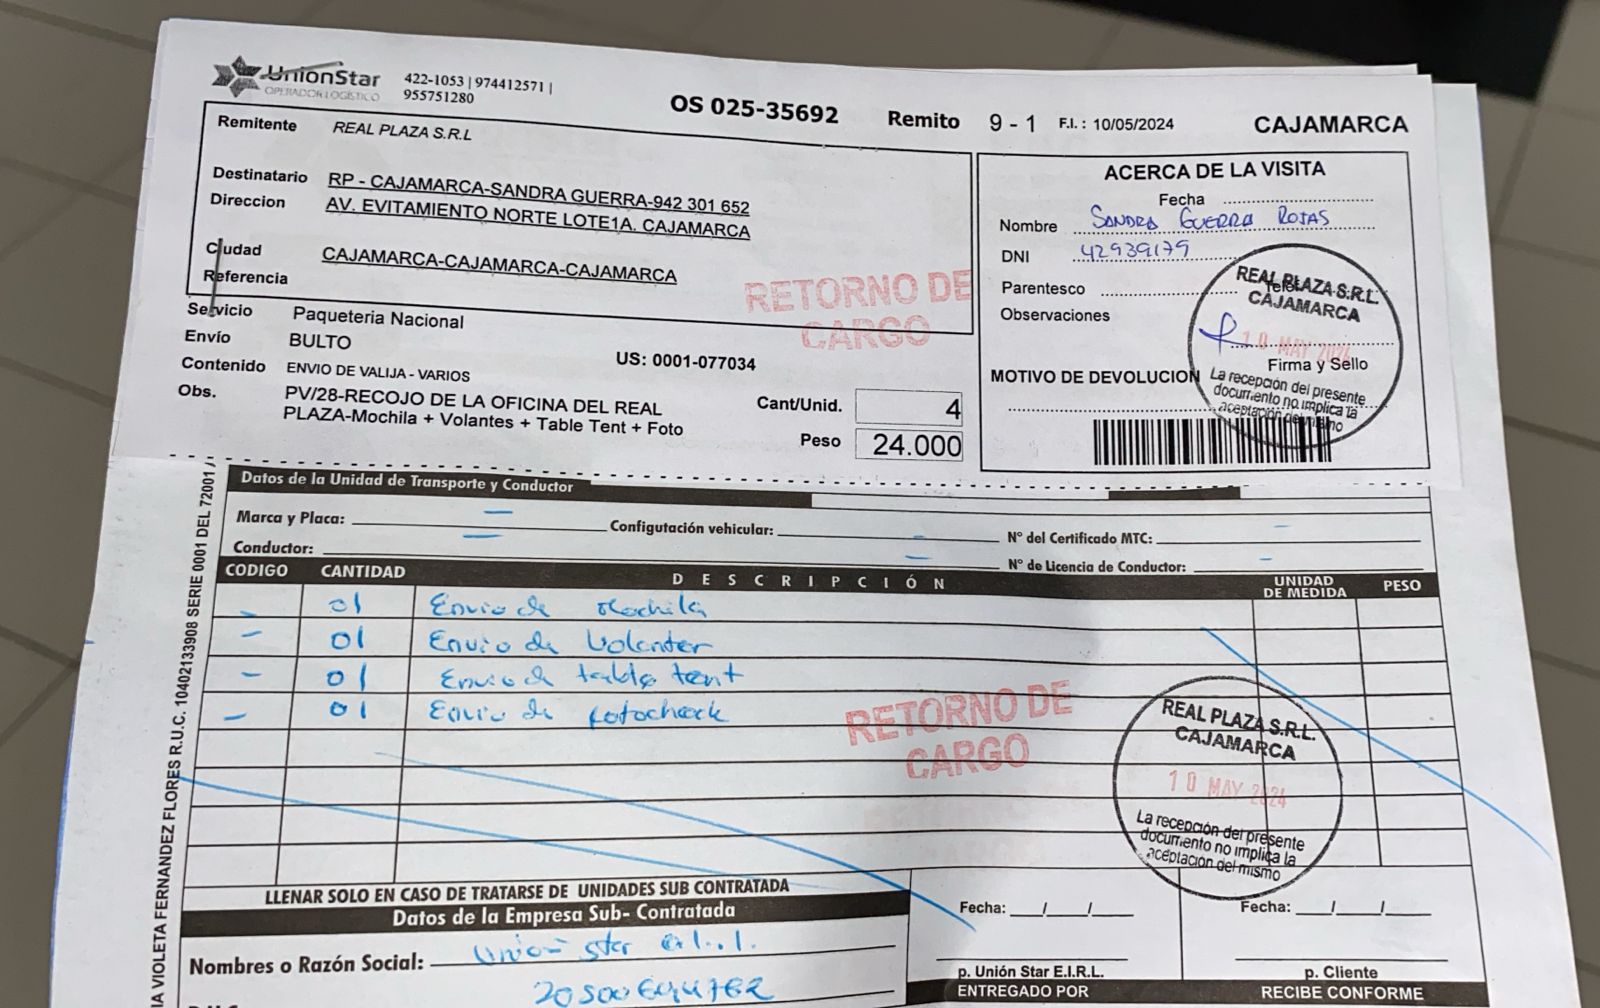 UnionStar
OPERADOR LOGÍSTICO
422-1053 | 974412571 |
955751280
OS 025-35692
Remito 9 - 1
F.I. : 10/05/2024
CAJAMARCA
Remitente REAL PLAZA S.R.L
Destinatario RP - CAJAMARCA-SANDRA GUERRA-942 301 652
Direccion AV. EVITAMIENTO NORTE LOTE1A. CAJAMARCA
Ciudad CAJAMARCA-CAJAMARCA-CAJAMARCA
Referencia
RETORNO DE
CARGO
Servicio Paqueteria Nacional
Envío BULTO
US: 0001-077034
Contenido ENVIO DE VALIJA - VARIOS
Obs. PV/28-RECOJO DE LA OFICINA DEL REAL
PLAZA-Mochila + Volantes + Table Tent + Foto
Cant/Unid. 4
Peso 24.000
ACERCA DE LA VISITA
Fecha
Nombre SANDRA GUERRA ROJAS
DNI 42939179
Parentesco
Observaciones
REAL PLAZA S.R.L.
CAJAMARCA
10 MAY 2024
Firma y Sello
La recepción del presente
documento no implica la
aceptación del mismo
MOTIVO DE DEVOLUCION
Datos de la Unidad de Transporte y Conductor
Marca y Placa: Configutación vehicular: N° del Certificado MTC:
Conductor: N° de Licencia de Conductor:
CODIGO CANTIDAD DESCRIPCIÓN UNIDAD DE MEDIDA PESO
- 01 Envio de Mochila
- 01 Envio de Volantes
- 01 Envio de table tent
- 01 Envio de fotocheck
RETORNO DE
CARGO
REAL PLAZA S.R.L.
CAJAMARCA
10 MAY 2024
La recepción del presente
documento no implica la
aceptación del mismo
LLENAR SOLO EN CASO DE TRATARSE DE UNIDADES SUB CONTRATADA
Datos de la Empresa Sub- Contratada
Nombres o Razón Social: Union Star
Fecha: __/__/__
p. Unión Star E.I.R.L.
ENTREGADO POR
Fecha: __/__/__
p. Cliente
RECIBE CONFORME
IA VIOLETA FERNANDEZ FLORES R.U.C. 10402133908 SERIE 0001 DEL 72001